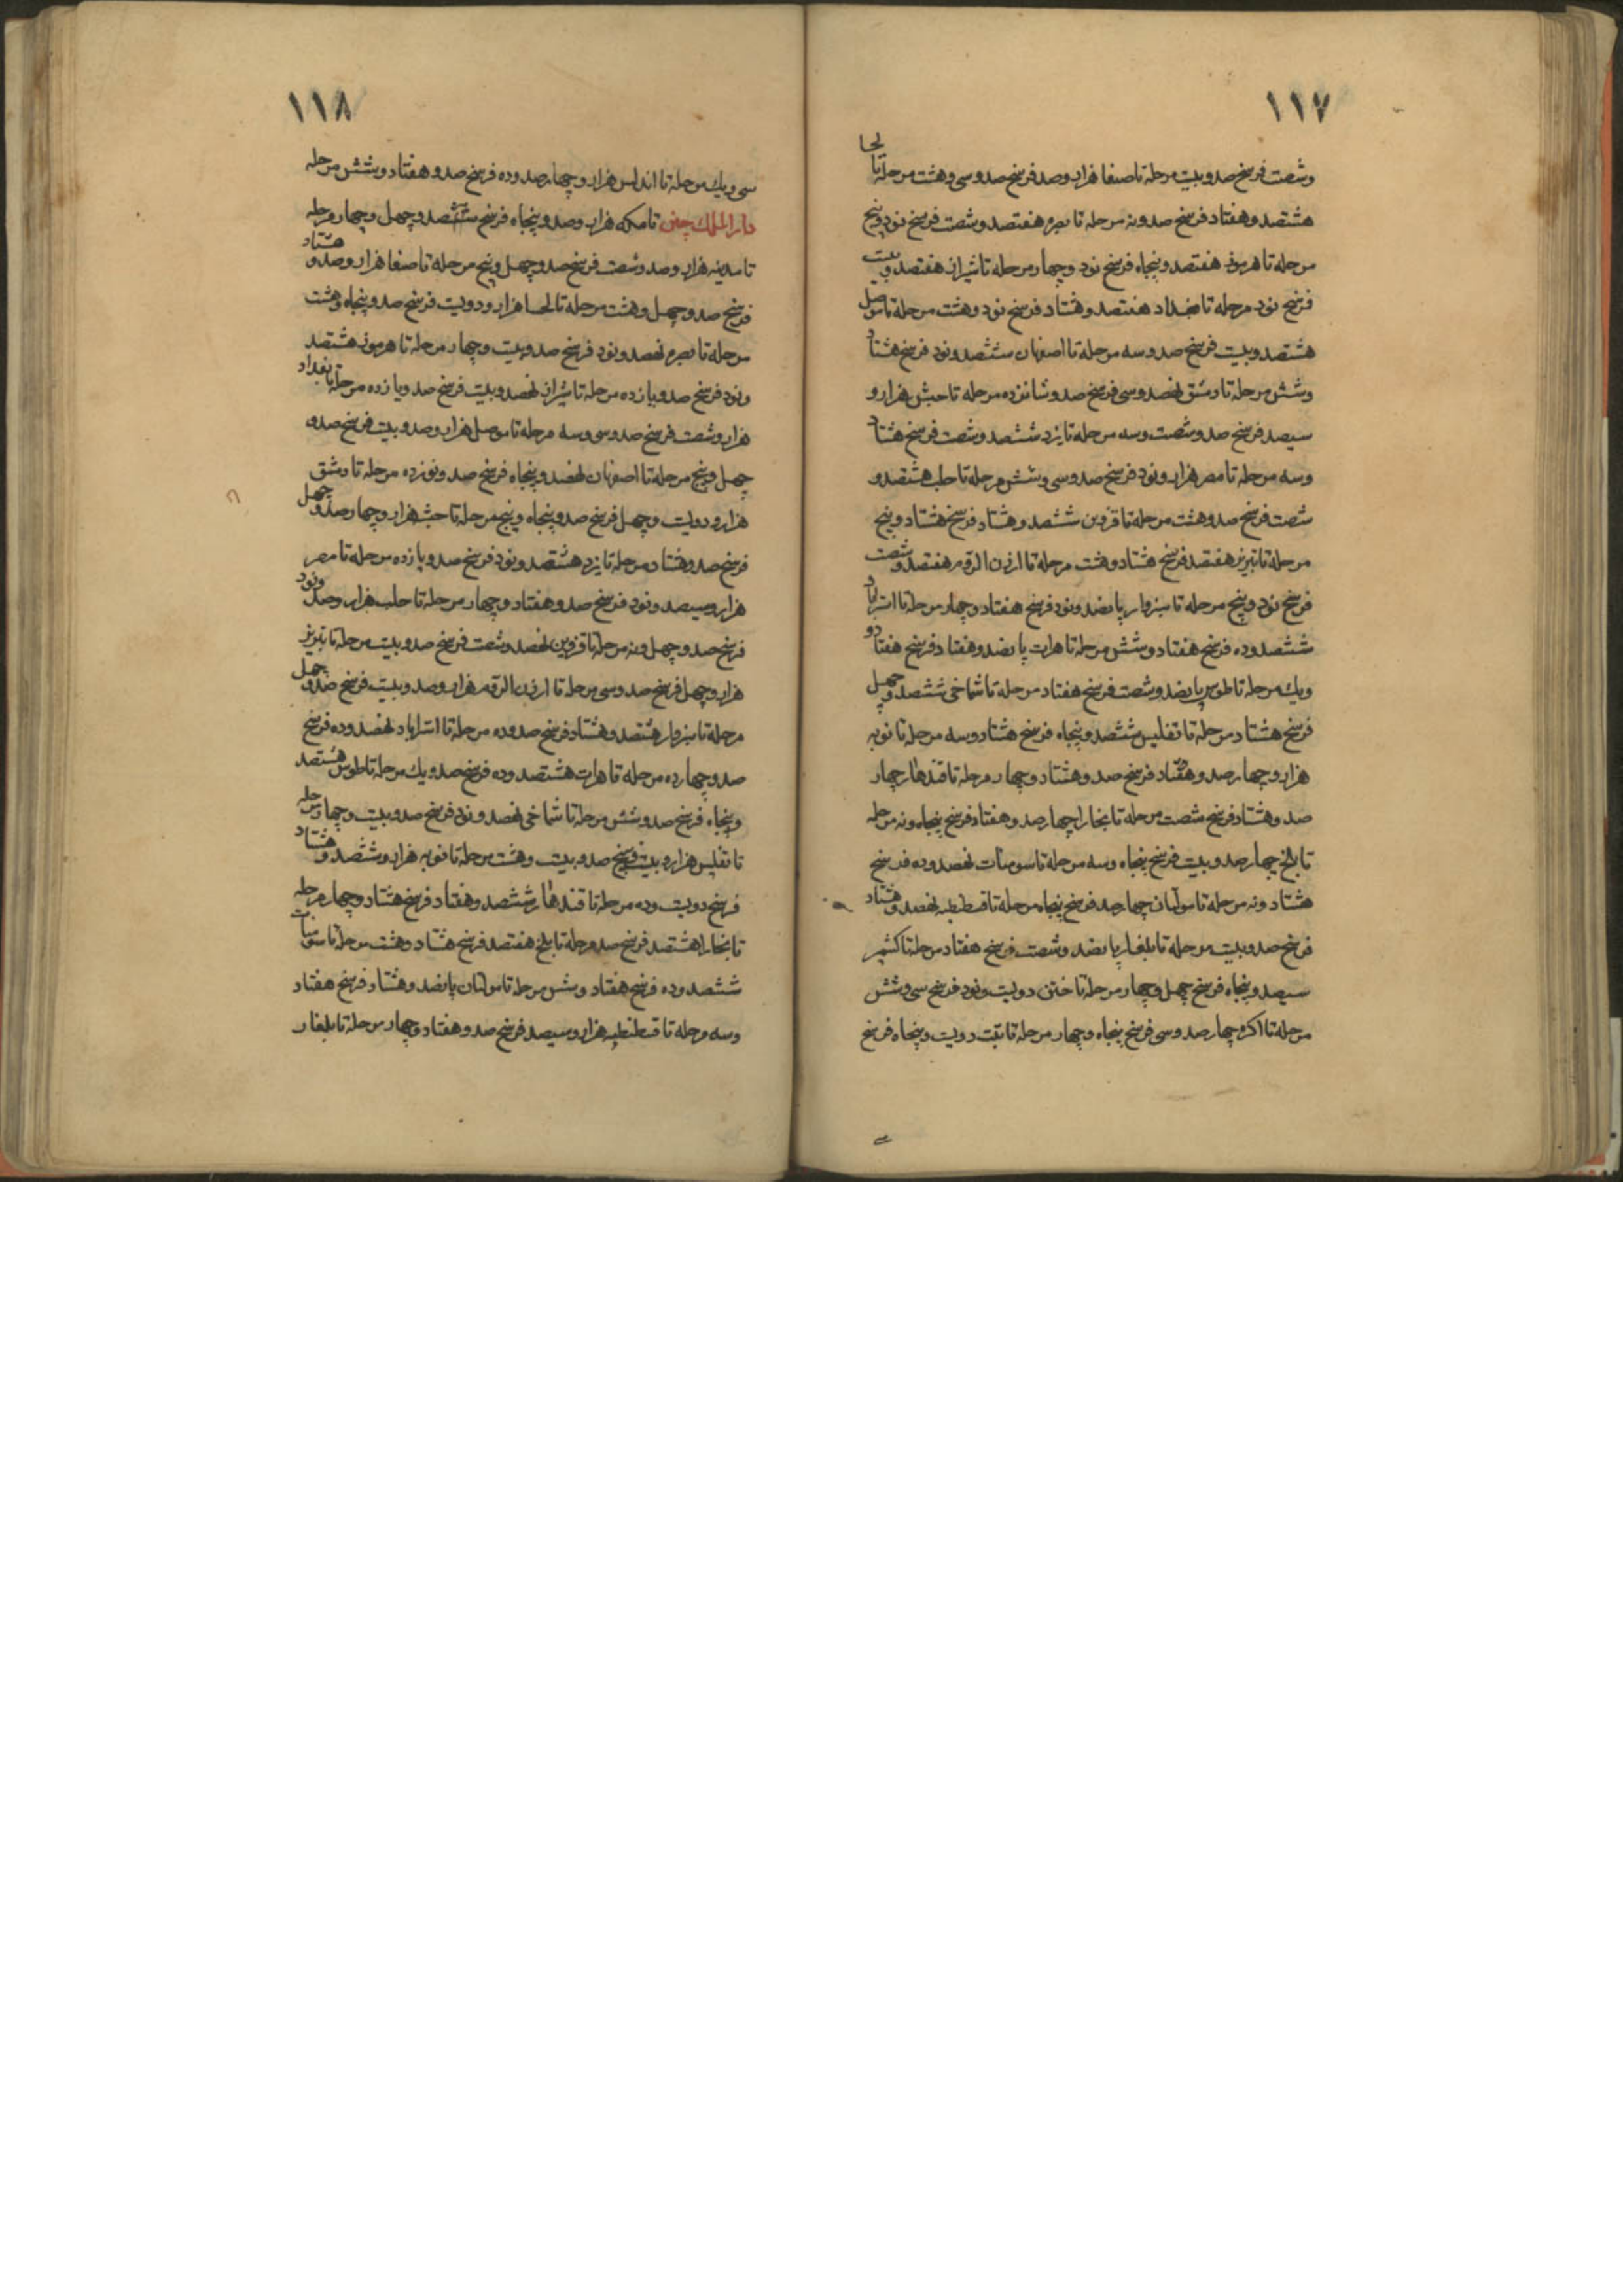 ١١٧
وشصت فرسخ صد و بیست مرحله تا صنعا هزار و صد فرسخ صد و سی و هشت مرحله تا لحسا
هشتصد و هفتاد فرسخ صد و نه مرحله تا بصره هفتصد و شصت فرسخ نود و پنج
مرحله تا هرموز هفتصد و پنجاه فرسخ نود و چهار مرحله تا شیراز هفتصد و بیست
فرسخ نود مرحله تا بغداد هفتصد و هشتاد فرسخ نود و هشت مرحله تا موصل
هشتصد و بیست فرسخ صد و سه مرحله تا اصفهان ششصد و نود فرسخ هشتاد
و شش مرحله تا دمشق نهصد و سی فرسخ صد و شانزده مرحله تا حبش هزار و
سیصد فرسخ صد و شصت و سه مرحله تا یزد ششصد و شصت فرسخ هشتاد
و سه مرحله تا مصر هزار و نود فرسخ صد و سی و شش مرحله تا حلب هشتصد و
شصت فرسخ صد و هشت مرحله تا قزوین ششصد و هشتاد فرسخ هشتاد و پنج
مرحله تا تبریز هفتصد فرسخ هشتاد و هشت مرحله تا ارزن الروم هفتصد و شصت
فرسخ نود و پنج مرحله تا سبزوار پانصد و نود فرسخ هفتاد و چهار مرحله تا استراباد
ششصد و ده فرسخ هفتاد و شش مرحله تا هرات پانصد و هفتاد فرسخ هفتاد و
و یك مرحله تا طوس پانصد و شصت فرسخ هفتاد مرحله تا شماخی ششصد و چهل
فرسخ هشتاد مرحله تا تفلیس ششصد و پنجاه فرسخ هشتاد و سه مرحله تا نوبه
هزار و چهار صد و هفتاد فرسخ صد و هشتاد و چهار مرحله تا قندهار چهار
صد و هشتاد فرسخ شصت مرحله تا بخارا چهار صد و هفتاد فرسخ پنجاه و نه مرحله
تا بلخ چهار صد و بیست فرسخ پنجاه و سه مرحله تا سومنات نهصد و ده فرسخ
هشتاد و نه مرحله تا مولتان چهار صد فرسخ پنجاه مرحله تا قسطنطیه نهصد و هشتاد
فرسخ صد و بیست مرحله تا بلغار پانصد و شصت فرسخ هفتاد مرحله تا کشمیر
سیصد و پنجاه فرسخ چهل و چهار مرحله تا ختن دویست و نود فرسخ سی و شش
مرحله تا اکره چهار صد و سی فرسخ پنجاه و چهار مرحله تا تبت دویست و پنجاه فرسخ
١١٨
سی و یك مرحله تا اندلس هزار و چهار صد و ده فرسخ صد و هفتاد و شش مرحله
دار الملك چین تا مکه هزار و صد و پنجاه فرسخ صد و چهل و چهار مرحله
تا مدینه هزار و صد و شصت فرسخ صد و چهل و پنج مرحله تا صنعا هزار و صد و هشتاد
فرسخ صد و چهل و هشت مرحله تا لحسا هزار و دویست فرسخ صد و پنجاه و هشت
مرحله تا بصره نهصد و نود فرسخ صد و بیست و چهار مرحله تا هرموز هشتصد
و نود فرسخ صد و یازده مرحله تا شیراز نهصد و بیست فرسخ صد و یازده مرحله تا بغداد
هزار و شصت فرسخ صد و سی و سه مرحله تا موصل هزار و صد و بیست فرسخ صد و
چهل و پنج مرحله تا اصفهان نهصد و پنجاه فرسخ صد و نوزده مرحله تا دمشق
هزار و دویست و چهل فرسخ صد و پنجاه و پنج مرحله تا حبشه هزار و چهار صد و چهل
فرسخ صد و هشتاد مرحله تا یزد هشتصد و نود فرسخ صد و یازده مرحله تا مصر
هزار و سیصد و نود فرسخ صد و هفتاد و چهار مرحله تا حلب هزار و صد و نود
فرسخ صد و چهل و نه مرحله تا قزوین نهصد و شصت فرسخ صد و بیست مرحله تا تبریز
هزار و چهل فرسخ صد و سی مرحله تا ارزن الروم هزار و صد و بیست فرسخ صد و چهل
مرحله تا سبزوار هشتصد و هشتاد فرسخ صد و ده مرحله تا استراباد نهصد و ده فرسخ
صد و چهارده مرحله تا هرات هشتصد و ده فرسخ صد و یك مرحله تا طوس هشتصد
و پنجاه فرسخ صد و شش مرحله تا شماخی نهصد و نود فرسخ صد و بیست و چهار مرحله
تا تفلیس هزار و بیست فرسخ صد و بیست و هشت مرحله تا نوبه هزار و ششصد و هشتاد
فرسخ دویست و ده مرحله تا قندهار ششصد و هفتاد فرسخ هشتاد و چهار مرحله
تا بخارا هشتصد فرسخ صد مرحله تا بلخ هفتصد فرسخ هشتاد و هشت مرحله تا سومنات
ششصد و ده فرسخ هفتاد و شش مرحله تا مولتان پانصد و هشتاد فرسخ هفتاد
و سه مرحله تا قسطنطیه هزار و سیصد فرسخ صد و هفتاد و چهار مرحله تا بلغار